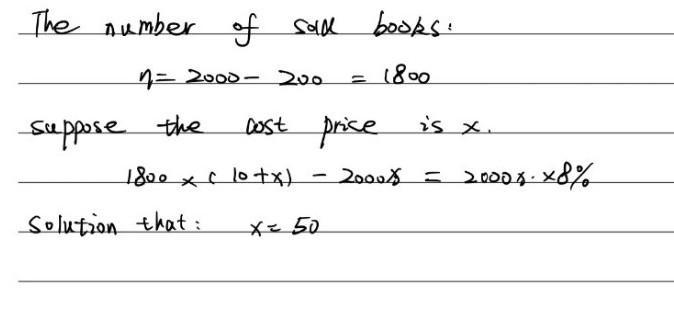 The number of sold books:
n= 2000 - 200 = 1800
suppose the cost price is x.
1800 × ( 10+x) - 2000x = 2000x·×8%
Solution that: x= 50